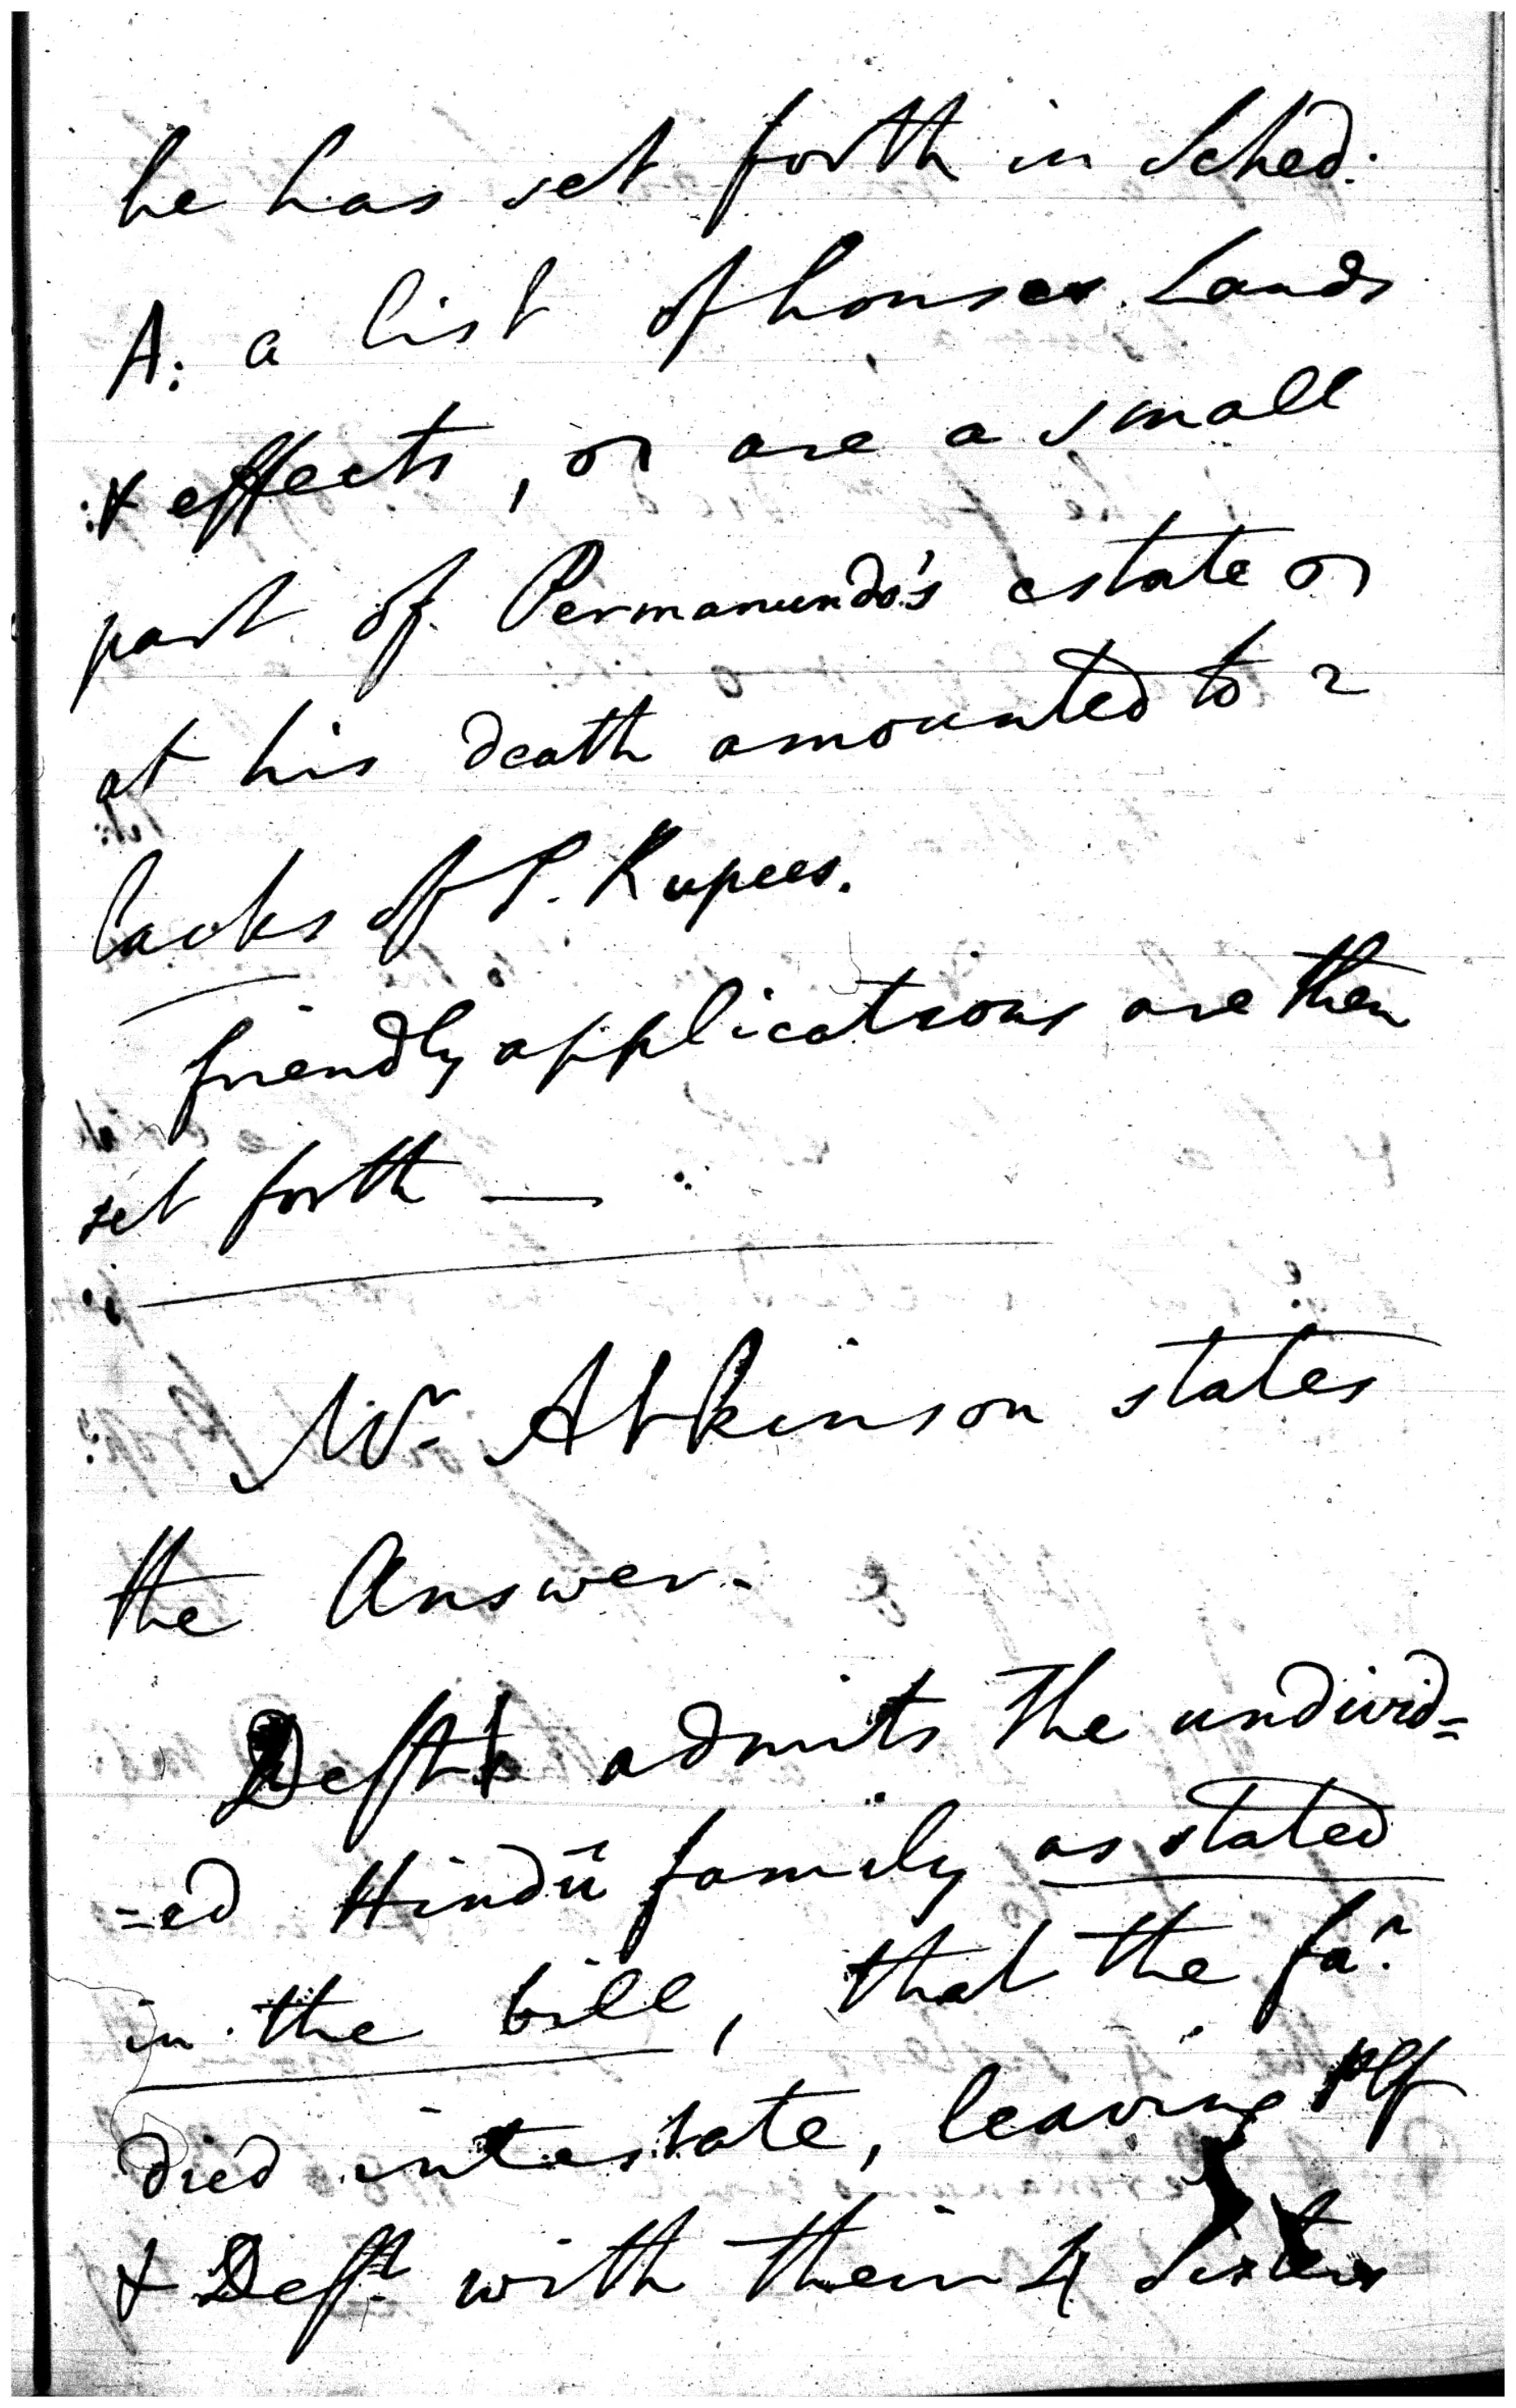 he has set forth in Sched:
A: a list of houses Lands
& effects, wh are a small
part of Permanundo's estate wh
at his death amounted to 2
lacks of S. Rupees.
friendly applications are then
set forth —
Mr Atkinson states
the Answer.
Deft admits the undivid=
=ed Hindū family as stated
in the bill, that the far
died intestate, leaving Plf
& Deft with their 4 Sisters